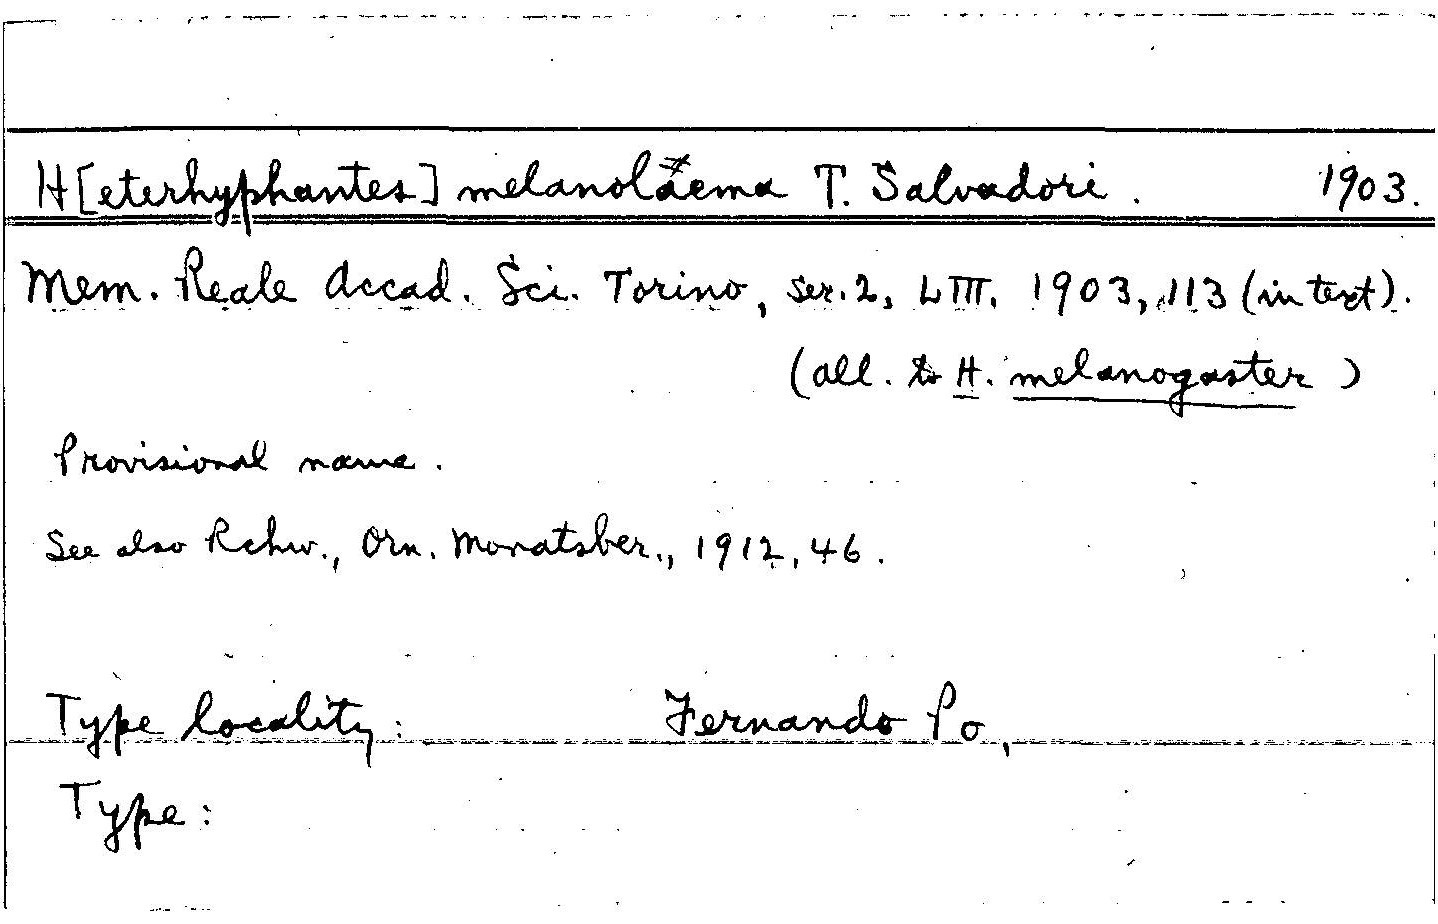 H[eterhyphantes] melanolaema T. Salvadori. 1903.
Mem. Reale Accad. Sci. Torino, ser. 2, LIII. 1903, 113 (in text).
(all. to H. melanogaster)
Provisional name.
See also Rchw., Orn. Monatsber., 1912, 46.
Type locality: Fernando Po,
Type: